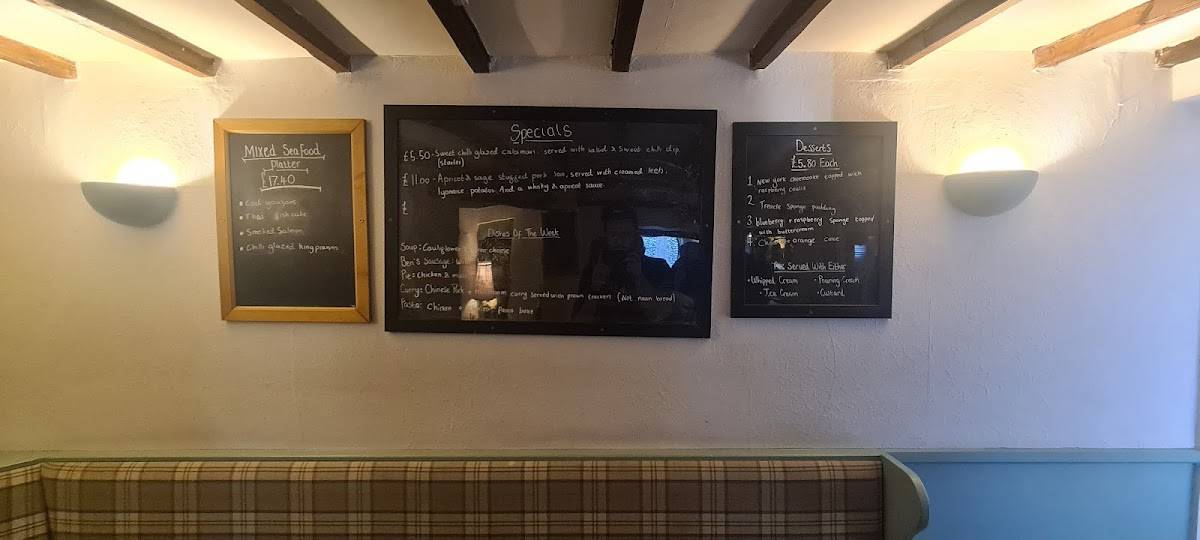 Mixed Seafood
Platter
£17.40
• Cod goujons
• Thai fishcake
• Smoked Salmon
• Chilli glazed king prawn
Specials
£5.50 - Sweet chilli glazed calamari. served with salad & sweet chilli dip.
(starter)
£11.00 - Apricot & sage stuffed pork loin, served with creamed leeks,
lyonaise potatoes. And a whisky & apricot sauce.
£
Dishes Of The Week
Soup: Cauliflower cheese
Ben's Sausage:
Pie: Chicken &
Curry: Chinese Pork + curry served with prawn crackers (Not naan bread)
Pasta: Chicken + sauce
Desserts
£5.80 Each
1. New york cheesecake topped with
raspberry coulis
2. Treacle Sponge pudding
3. blueberry + raspberry sponge topped
with buttercream
4. orange cake
Served With Either
• Whipped Cream • Pouring Cream
• Ice Cream • Custard